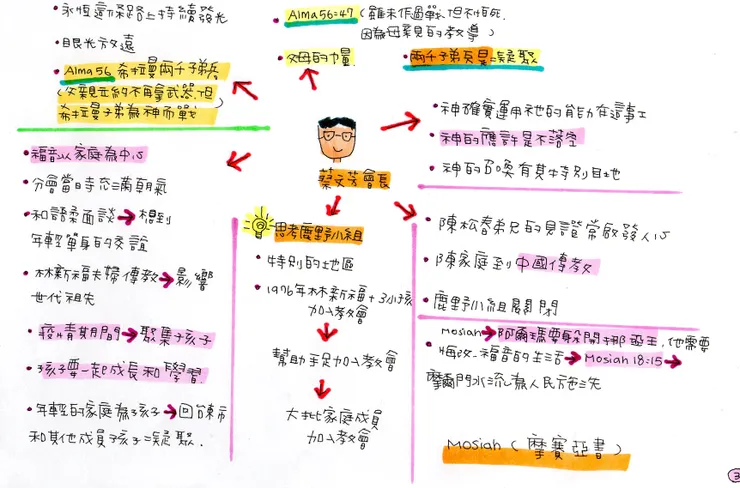 永恆這條路上持續發光
• 眼光放遠
• Alma 56 希拉曼兩千子弟兵
(父親立約不再拿武器,但
希拉曼子弟為神而戰
• Alma 56=47 (雖未作過戰,但不怕死.
因為母親的教導)
• 父母的力量.
• 兩千子弟兵是=凝聚
蔡文芳會長
• 神確實運用祂的能力在這事工
• 神的應許是不落空
• 神的召喚有其特別目地
• 福音以家庭為中心
• 分會當時充滿朝氣
• 和諾柔面談→想到
年輕單身的友誼
• 林新福夫婦傳教→影響
世代祖先
• 疫情期間→聚集孩子
• 孩子要一起成長和學習.
• 年輕的家庭為孩子→回台東市
和其他成員孩子=凝聚.
思考鹿野小組
• 特別的地區
• 1976年林新福+3小孩
加入教會
幫助手足加入教會
大批家庭成員
加入教會
• 陳松春弟兄的見證常啟發人心
• 陳家庭到中國傳教
• 鹿野小組關閉
Mosiah→阿爾瑪要躲開挪亞王,他需要
悔改.福音的生活→Mosiah 18:15→
摩爾門水流為人民施洗
Mosiah (摩賽亞書)
3